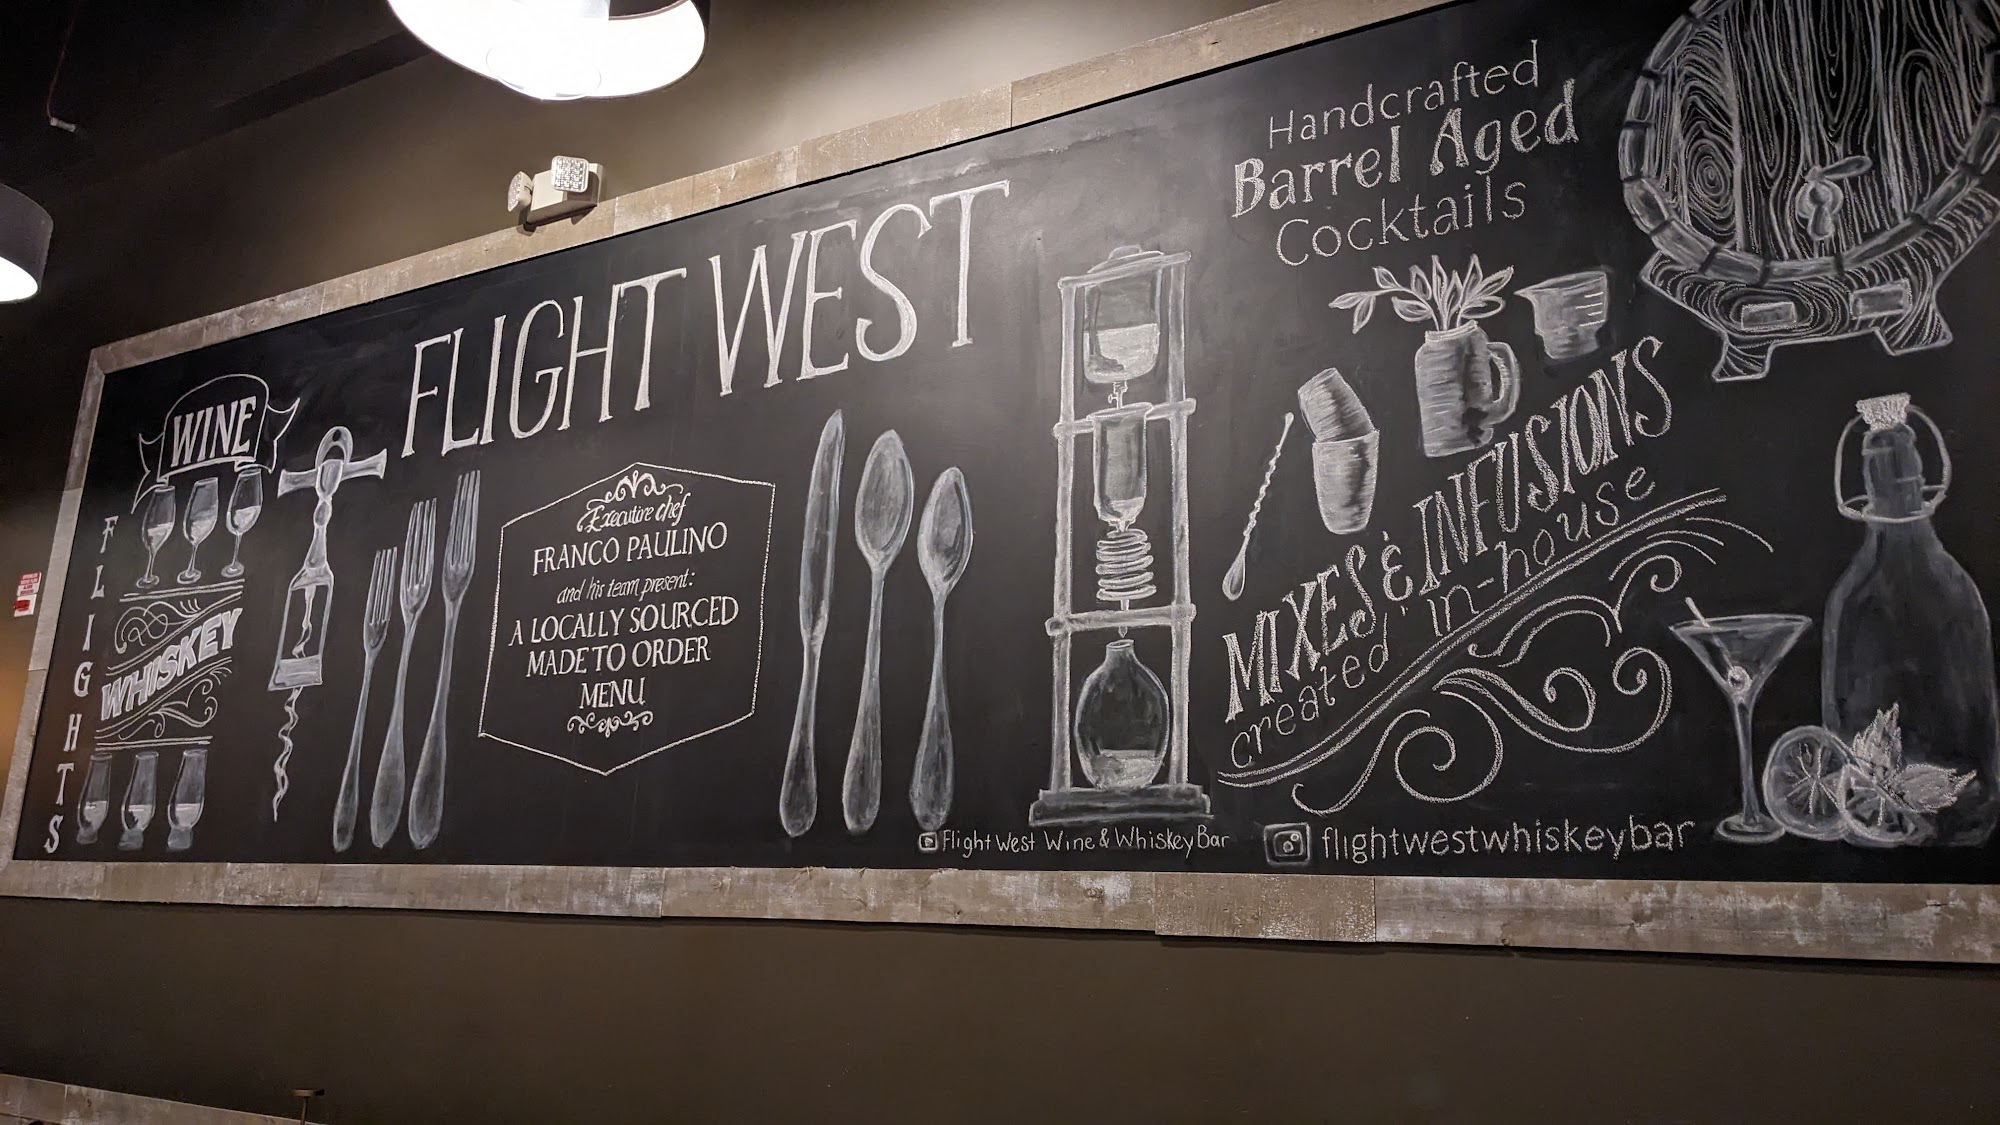 WINE
FLIGHTS
WHISKEY
FLIGHT WEST
Executive chef
FRANCO PAULINO
and his team present:
A LOCALLY SOURCED
MADE TO ORDER
MENU
Handcrafted
Barrel Aged
Cocktails
MIXES & INFUSIONS
created in-house
Flight West Wine & Whiskey Bar
flightwestwhiskeybar